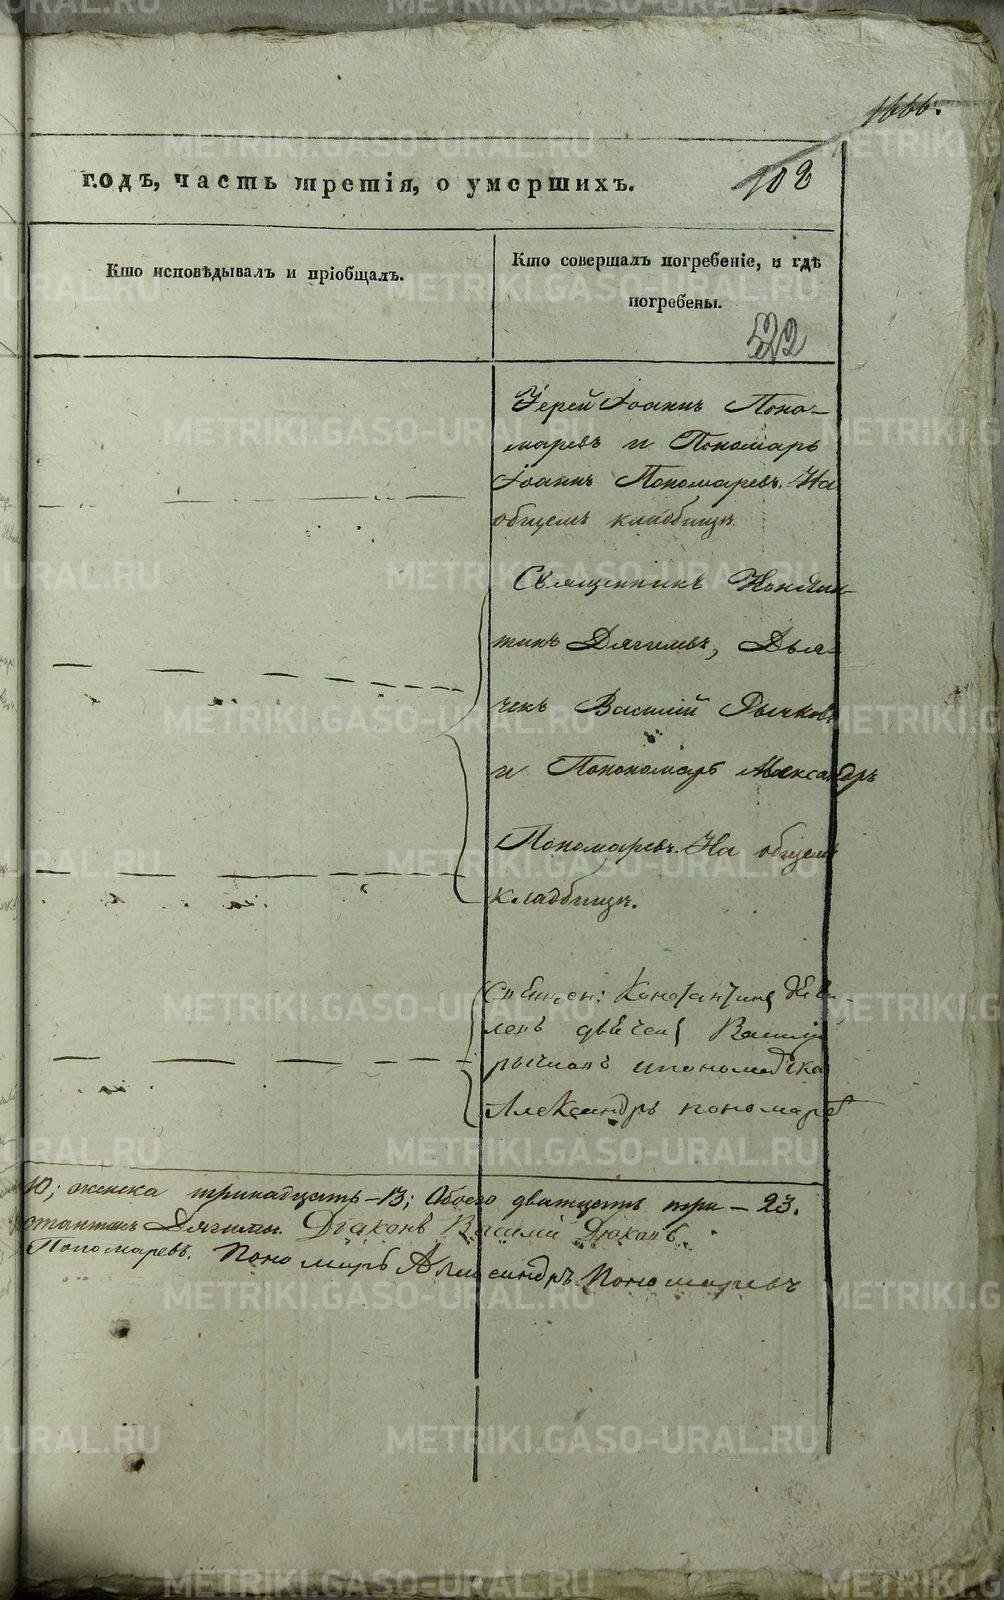 1666.
годъ, часть третія, о умершихъ.
102
Кто исповѣдывалъ и пріобщалъ.
Кто совершалъ погребеніе, и гдѣ
погребены.
522
Іерей Іоаннъ Поно-
маревъ и Пономарь
Іоаннъ Пономаревъ. На
общемъ кладбищѣ.
Священникъ Констан-
тинъ Дягилевъ, Дья-
чекъ Василій Рычковъ
и Понономарь Александръ
Пономаревъ. На общемъ
кладбищѣ.
Константинъ
Василій
Александръ пономарев
10; женска тринадцать - 13; Обоего дватцать три - 23.
стантинъ Дягилевъ. Дьяконъ Василій
Пономаревъ. Пономарь Александръ Пономаревъ
METRIKI.GASO-URAL.RU